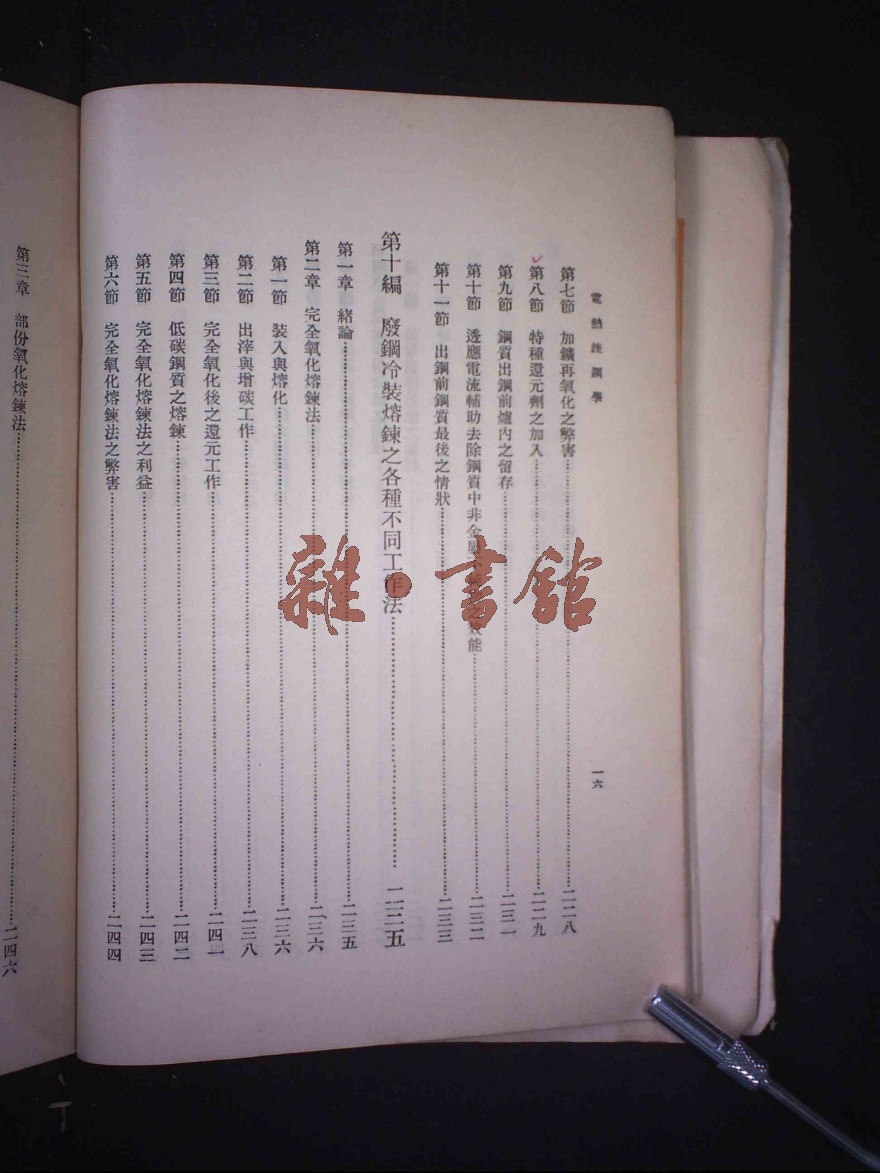 電熱鍊鋼學
一六
第七節 加鑛再氧化之弊害 二二八
第八節 特種還元劑之加入 二二九
第九節 鋼質出鋼前爐內之留存 二三一
第十節 透應電流輔助去除鋼質中非金 效能 二三二
第十一節 出鋼前鋼質最後之情狀 二三三
第十編 廢鋼冷裝熔鍊之各種不同工作法 二三五
第一章 緒論 二三五
第二章 完全氧化熔鍊法 二三六
第一節 裝入與熔化 二三六
第二節 出滓與增碳工作 二三八
第三節 完全氧化後之還元工作 二四一
第四節 低碳鋼質之熔鍊 二四二
第五節 完全氧化熔鍊法之利益 二四三
第六節 完全氧化熔鍊法之弊害 二四四
第三章 部份氧化熔鍊法 二四六
雜·書館